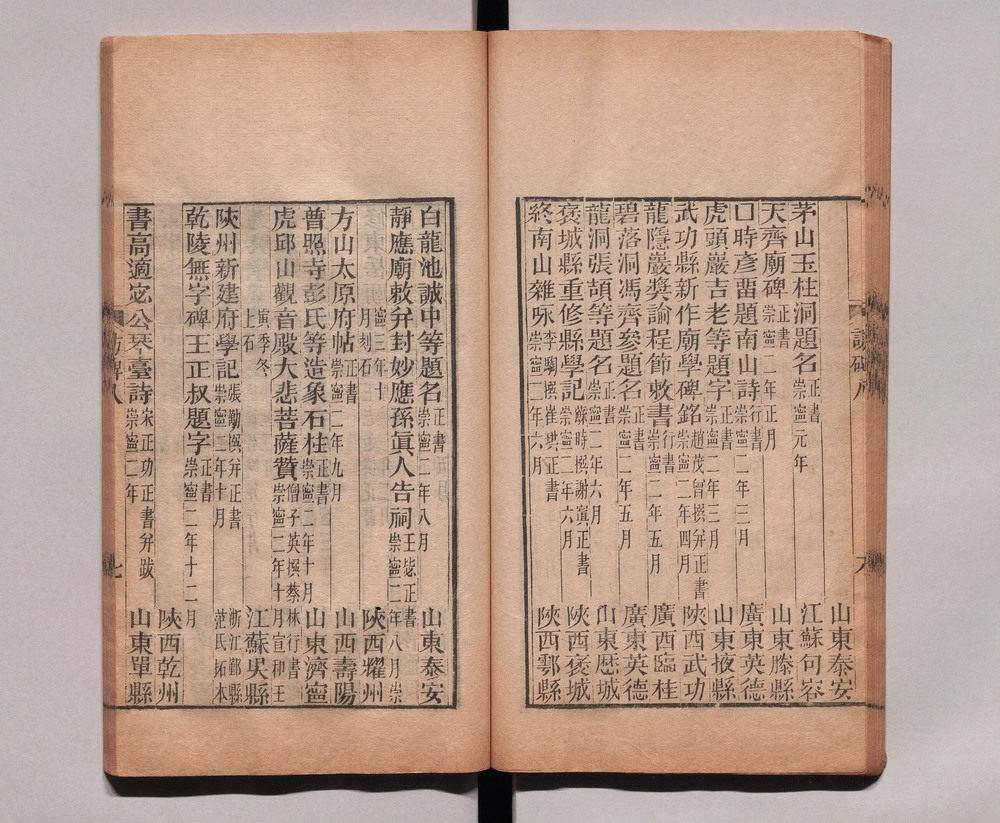 山東泰安
茅山玉柱洞題名 正書 崇寧元年 江蘇句容
天齊廟碑 正書 崇寧二年正月 山東滕縣
口時彥畱題南山詩 行書 崇寧二年三月 廣東英德
虎頭巖吉老等題字 正書 崇寧二年三月 山東掖縣
武功縣新作廟學碑銘 趙茂曾撰弁正書 崇寧二年四月 陝西武功
龍隱巖獎諭程節敕書 行書 崇寧二年五月 廣西臨桂
碧落洞馮齊參題名 正書 崇寧二年五月 廣東英德
龍洞張頡等題名 正書 崇寧二年六月 山東歷城
褒城縣重修縣學記 蘇時撰謝寘正書 崇寧二年六月 陝西褒城
終南山雜咏 李騊撰崔珙正書 崇寧二年六月 陝西鄠縣
白龍池誠中等題名 正書 崇寧二年八月 山東泰安
靜應廟敕弁封妙應孫眞人告祠 正書 崇寧二年八月崇
寧三年十月刻石 陝西耀州
方山太原府帖 正書 崇寧二年九月 山西壽陽
普照寺彭氏等造象石柱 正書 崇寧二年十月 山東濟寧
虎邱山觀音殿大悲菩薩贊 僧子英撰蔡林行書 崇寧二年十月宣和壬
寅季冬上石 江蘇吳縣
陝州新建府學記 張勱撰弁正書 崇寧二年十月 浙江鄞縣范氏拓本
乾陵無字碑王正叔題字 正書 崇寧二年十二月 陝西乾州
書高適宓公琹臺詩 宋正功正書弁跋 崇寧二年 山東單縣
訪碑八
七